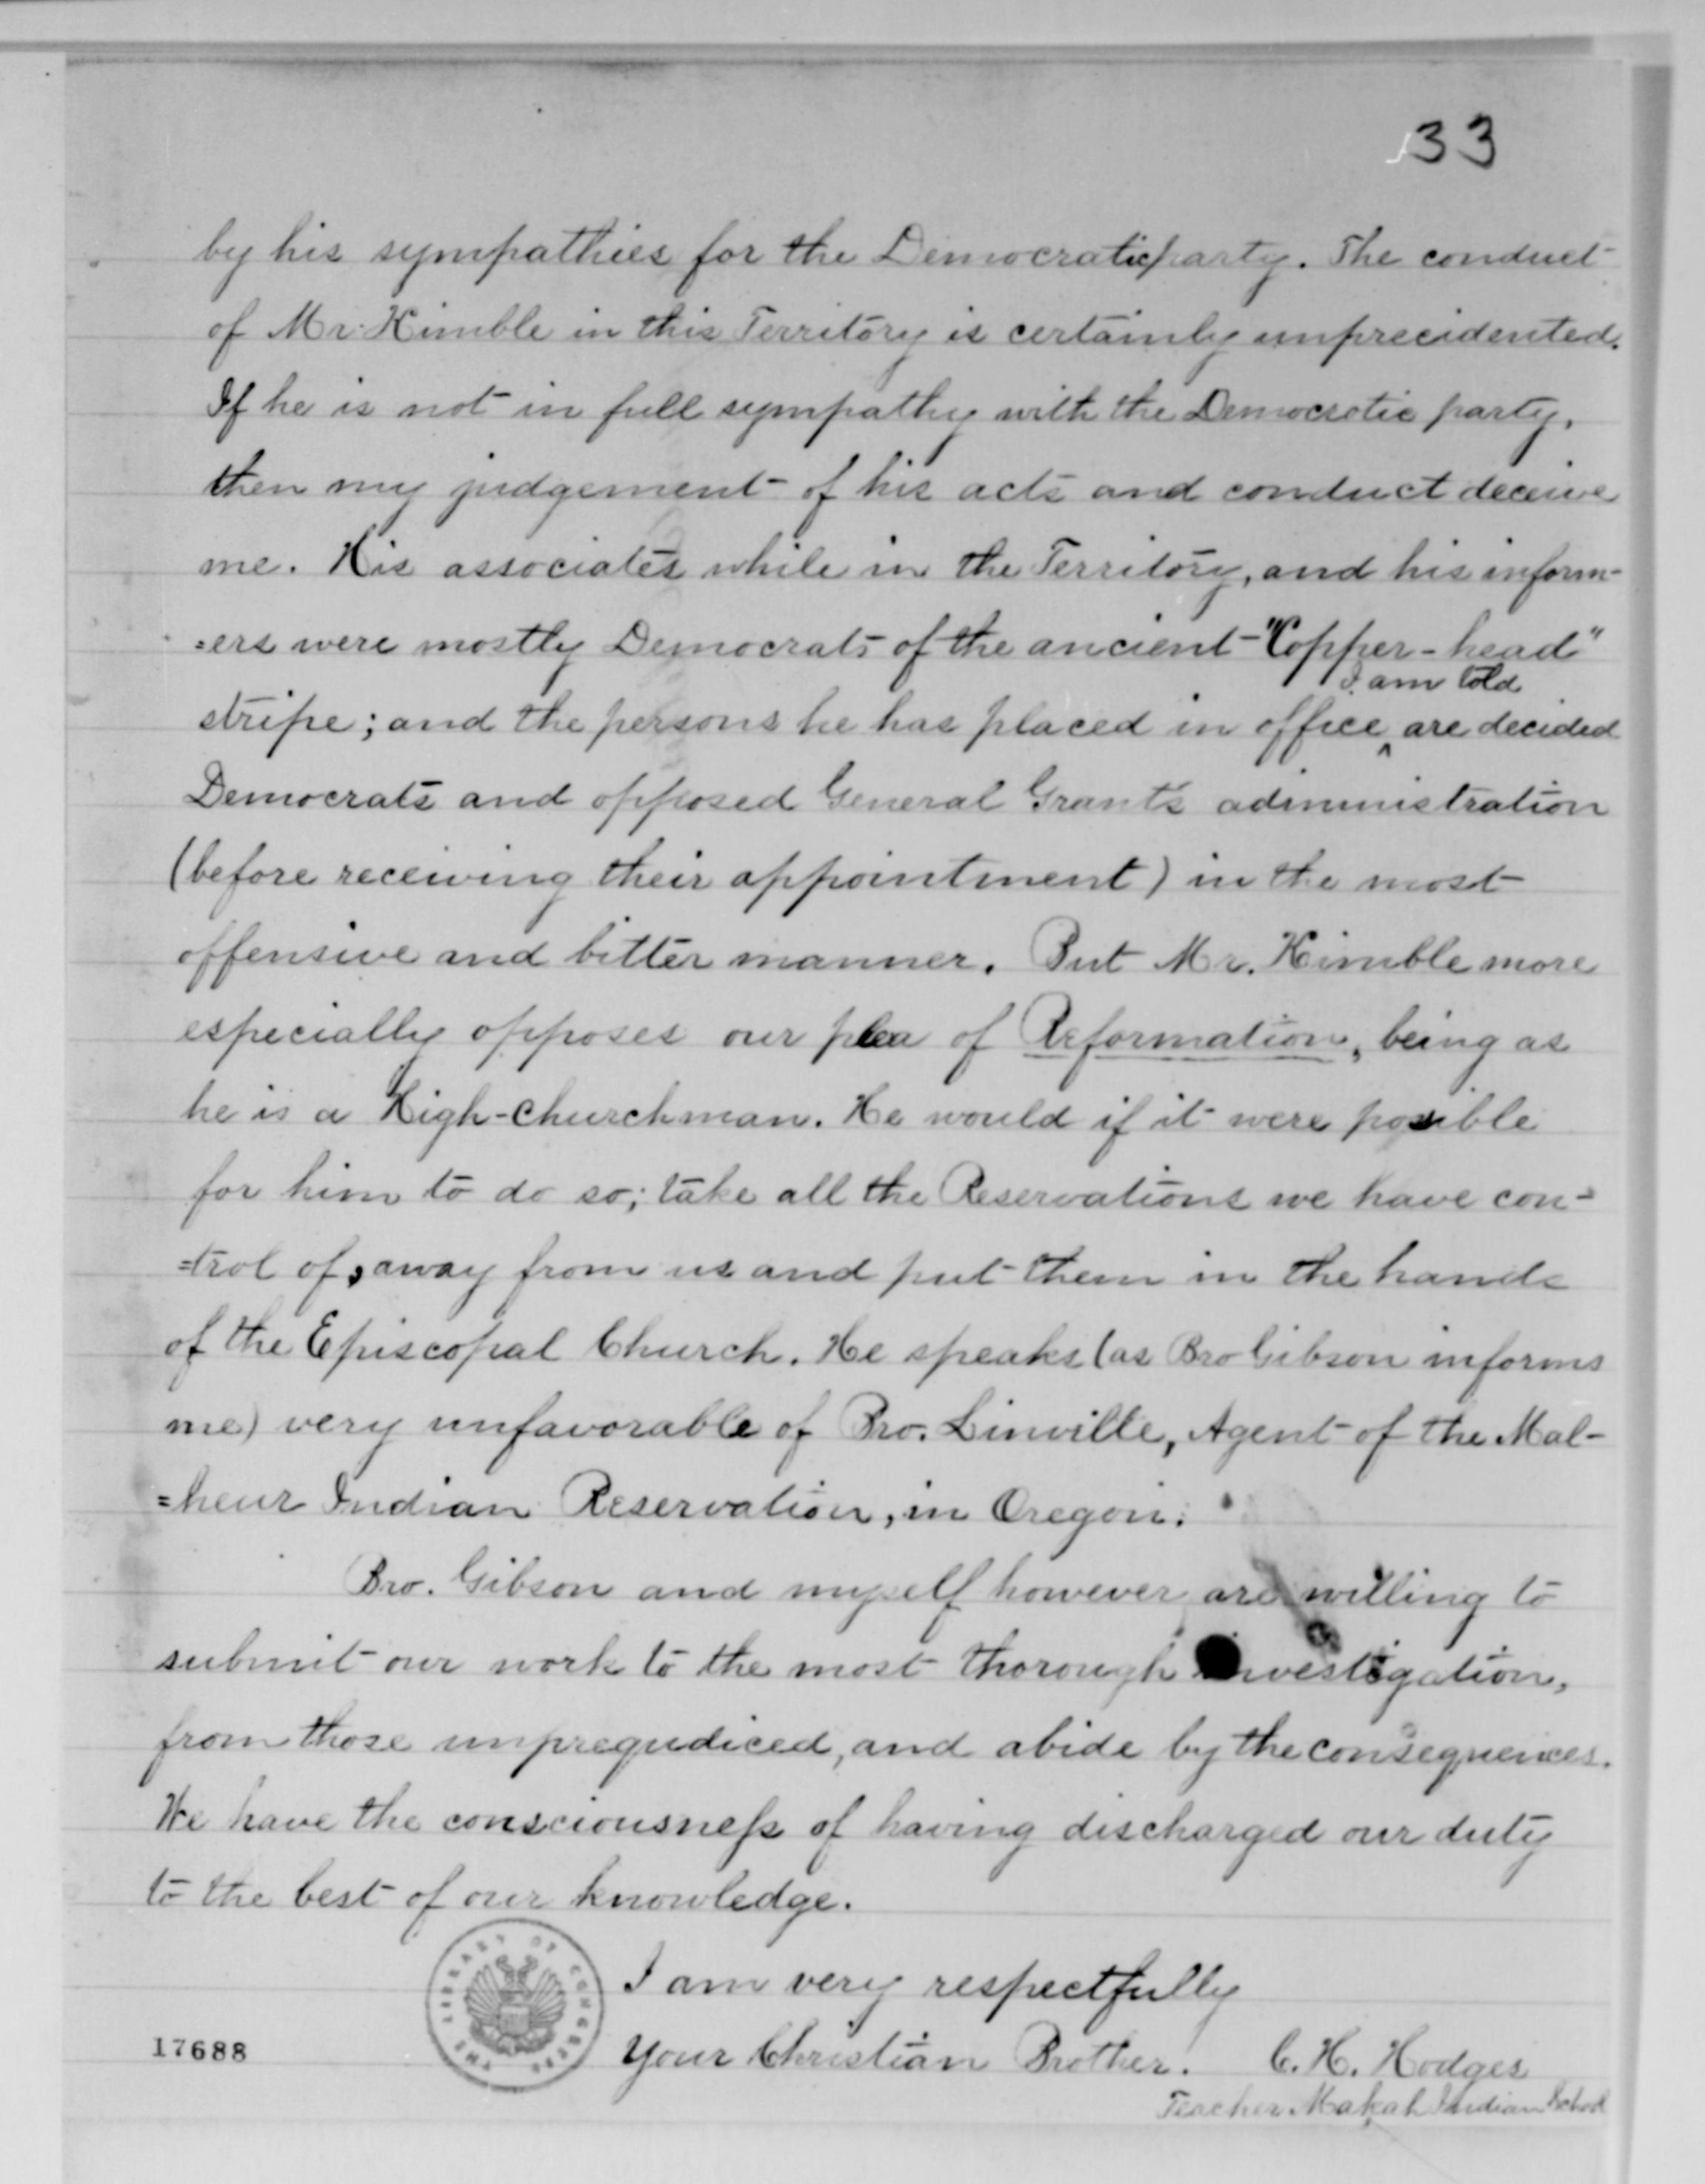 33
by his sympathies for the Democratic party. The conduct
of Mr. Kimble in this Territory is certainly unprecidented.
If he is not in full sympathy with the Democrotic party,
then my judgement of his acts and conduct deceive
me. His associates while in the Territory, and his inform-
=ers were mostly Democrats of the ancient "Copper-head"
I am told
stripe; and the persons he has placed in office ^ are decided
Democrats and opposed General Grants administration
(before receiving their appointment) in the most
offensive and bitter manner. But Mr. Kimble more
especially opposes our plea of Reformation, being as
he is a High-churchman. He would if it were possible
for him to do so; take all the Reservations we have con-
=trol of, away from us and put them in the hands
of the Episcopal Church. He speaks (as Bro Gibson informs
me) very unfavorable of Bro. Linville, Agent of the Mal-
=heur Indian Reservation, in Oregon.
Bro. Gibson and myself however are willing to
submit our work to the most thorough investigation,
from those unpregudiced, and abide by the consequences.
We have the consciousneſs of having discharged our duty
to the best of our knowledge.
I am very respectfully
Your Christian Brother. C. H. Hodges
Teacher Makah Indian School
17688
THE LIBRARY OF CONGRESS